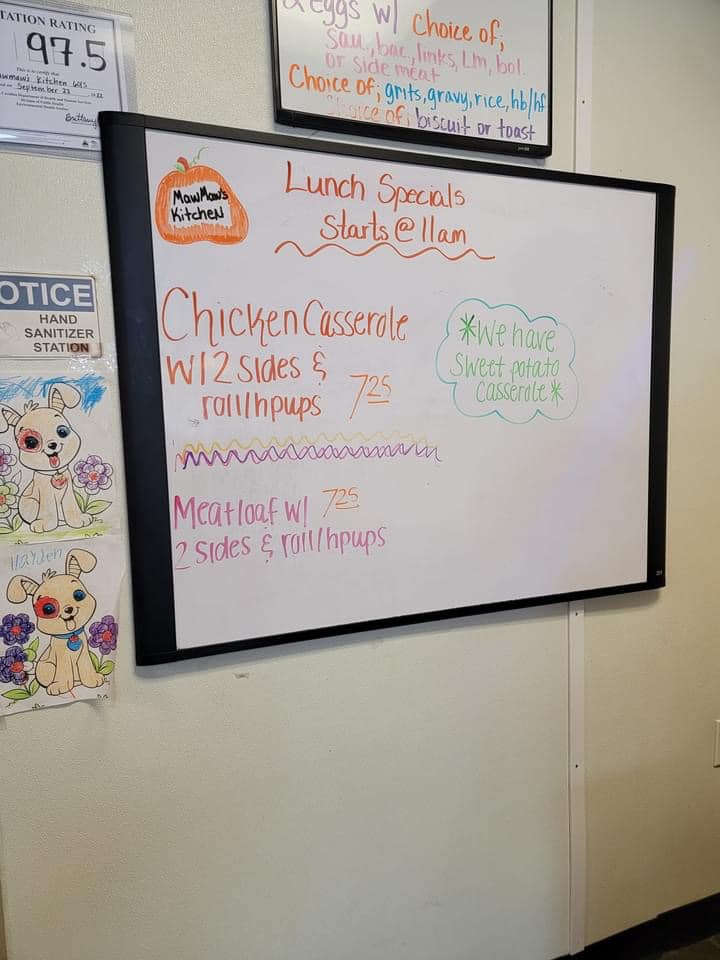 TATION RATING
97.5
This is to certify that
awmaw's Kitchen
September 23
OTICE
HAND
SANITIZER
STATION
Hayden
2 eggs w/ Choice of;
Sau., bac, links, Lm, bol.
or side meat
Choice of; grits, gravy, rice, hb/hf
Choice of; biscuit or toast
MawMaw's
Kitchen
Lunch Specials
Starts @ 11am
Chicken Casserole
w/ 2 sides &
roll/hpups 7.25
*We have
sweet potato
casserole*
Meatloaf w/ 7.25
2 sides & roll/hpups